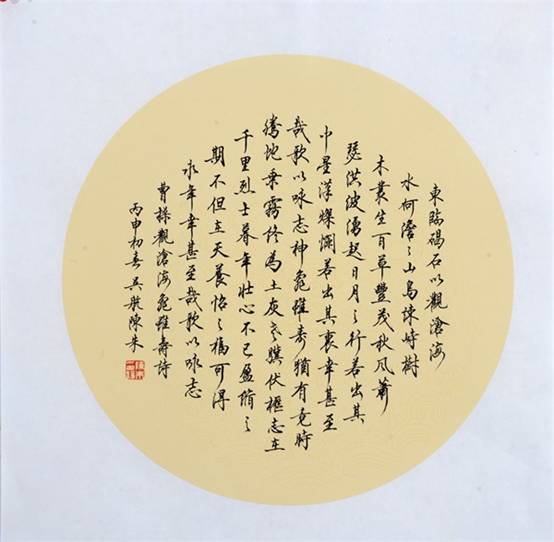 東臨碣石以觀滄海
水何澹々山島竦峙樹
木叢生百草豐茂秋風蕭
瑟洪波湧起日月之行若出其
中星漢燦爛若出其裏幸甚至
哉歌以詠志神龜雖壽猶有竟時
騰蛇乘霧終為土灰老驥伏櫪志在
千里烈士暮年壯心不已盈縮之
期不但在天養怡之福可得
永年幸甚至哉歌以詠志
曹操觀滄海龜雖壽詩
丙申初春吳航陳朱